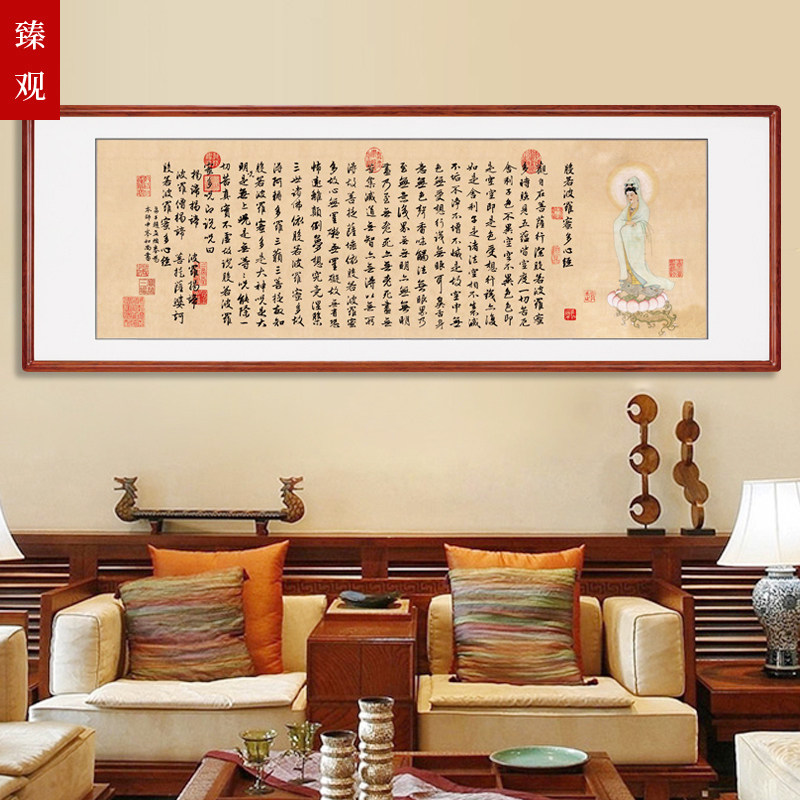 臻观
般若波羅蜜多心經
觀自在菩薩行深般若波羅蜜
多時照見五蘊皆空度一切苦厄
舍利子色不異空空不異色色即
是空空即是色受想行識亦復
如是舍利子是諸法空相不生不滅
不垢不淨不增不減是故空中無
色無受想行識無眼耳鼻舌身
意無色聲香味觸法無眼界乃
至無意識界無無明亦無無明
盡乃至無老死亦無老死盡無
苦集滅道無智亦無得以無所
得故菩提薩埵依般若波羅蜜
多故心無罣礙無罣礙故無有恐
怖遠離顛倒夢想究竟涅槃
三世諸佛依般若波羅蜜多故
得阿耨多羅三藐三菩提故知
般若波羅蜜多是大神咒是大
明咒是無上咒是無等等咒能除一
切苦真實不虛故說般若波羅
蜜多咒即說咒曰
揭諦揭諦 波羅揭諦
波羅僧揭諦 菩提薩婆訶
般若波羅蜜多心經